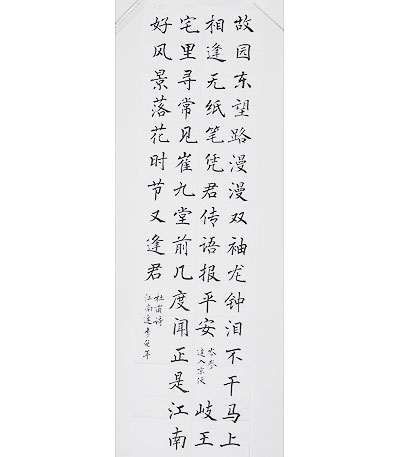 故园东望路漫漫双袖龙钟泪不干马上
相逢无纸笔凭君传语报平安
岑参
逢入京使
岐王
宅里寻常见崔九堂前几度闻正是江南
好风景落花时节又逢君
杜甫诗
江南逢李龟年